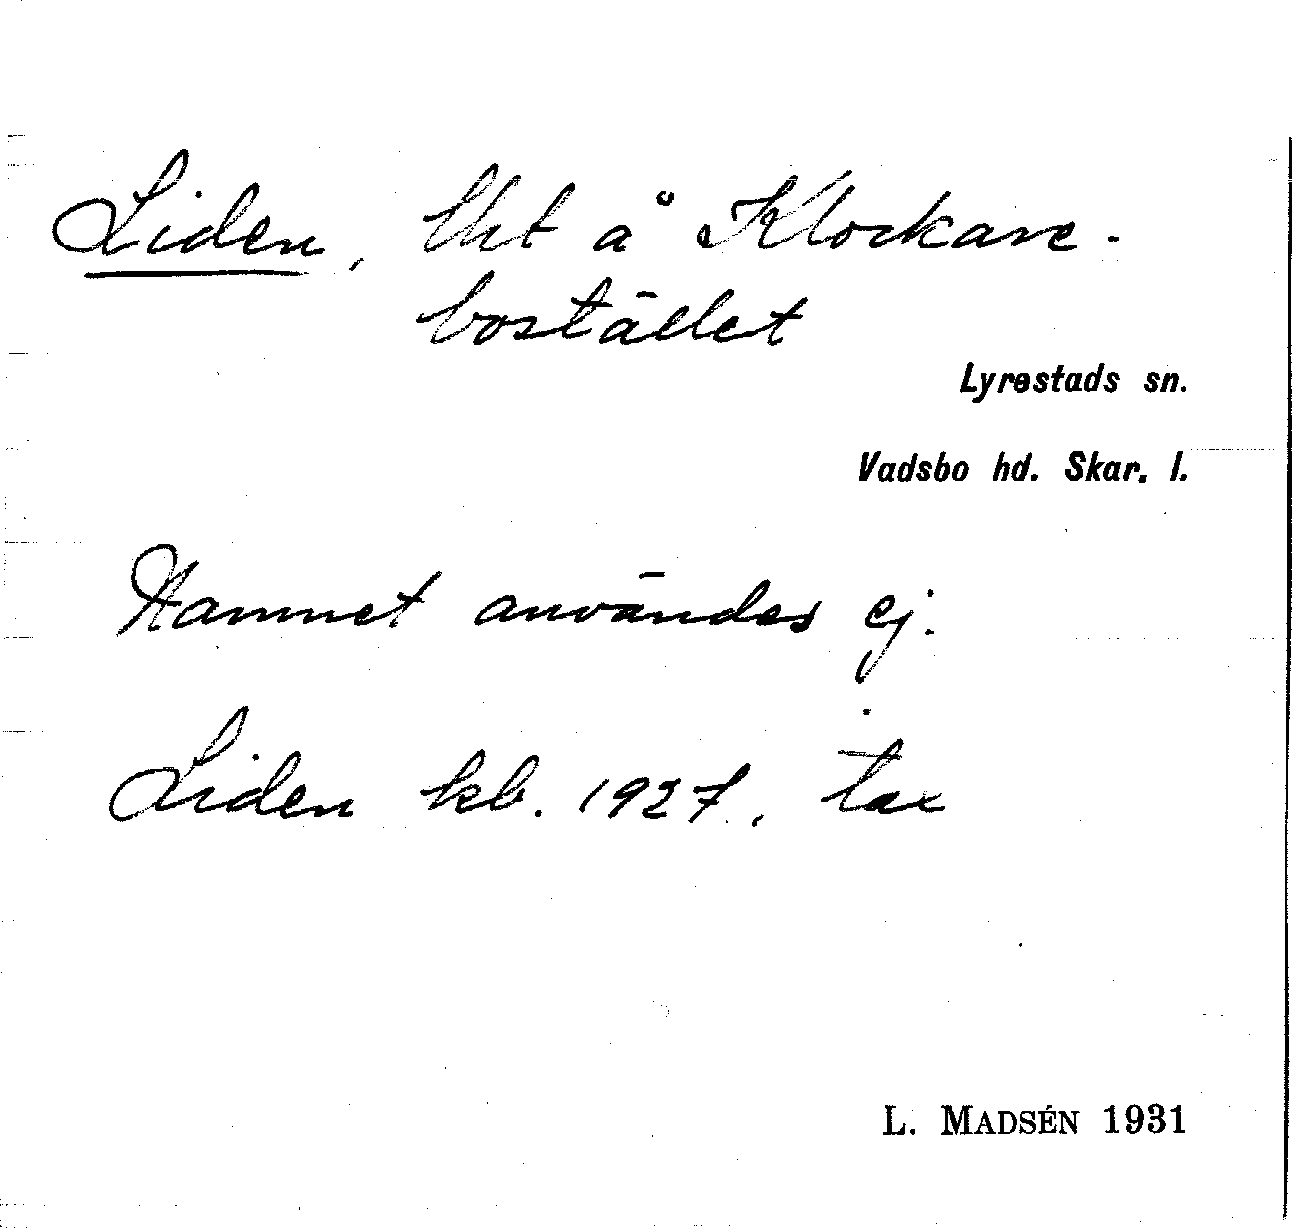 Liden, lht å Klockare-
bostället
Lyrestads sn.
Vadsbo hd. Skar. l.
Namnet användes ej.
Liden kb. 1927, tax
L. MADSÉN 1931